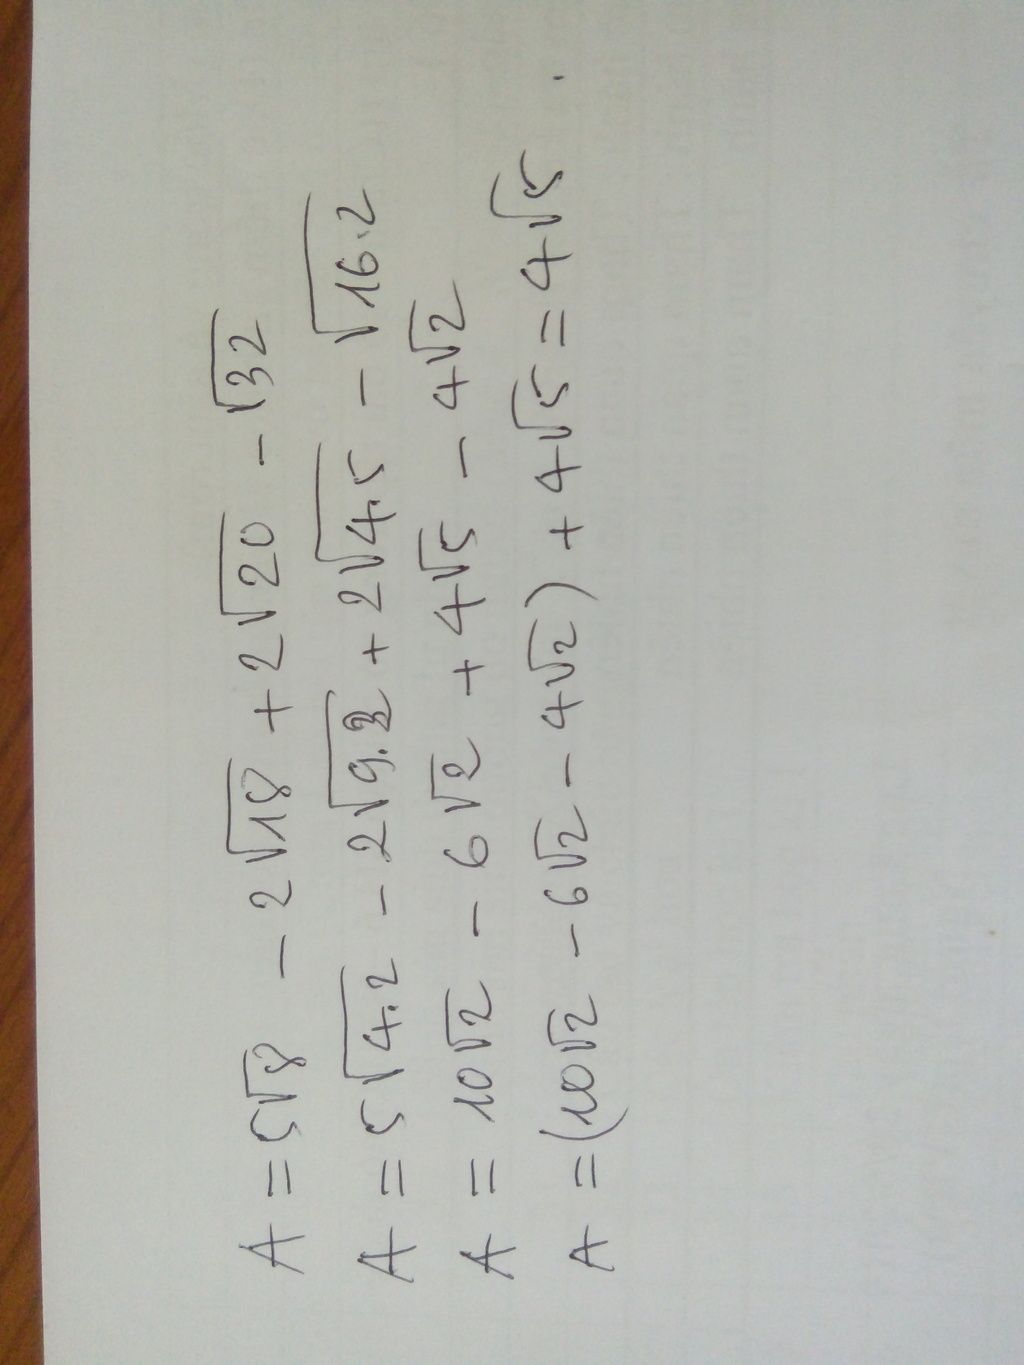 A = 5√8 - 2√18 + 2√20 - √32
A = 5√4.2 - 2√9.2 + 2√4.5 - √16.2
A = 10√2 - 6√2 + 4√5 - 4√2
A = (10√2 - 6√2 - 4√2) + 4√5 = 4√5 .